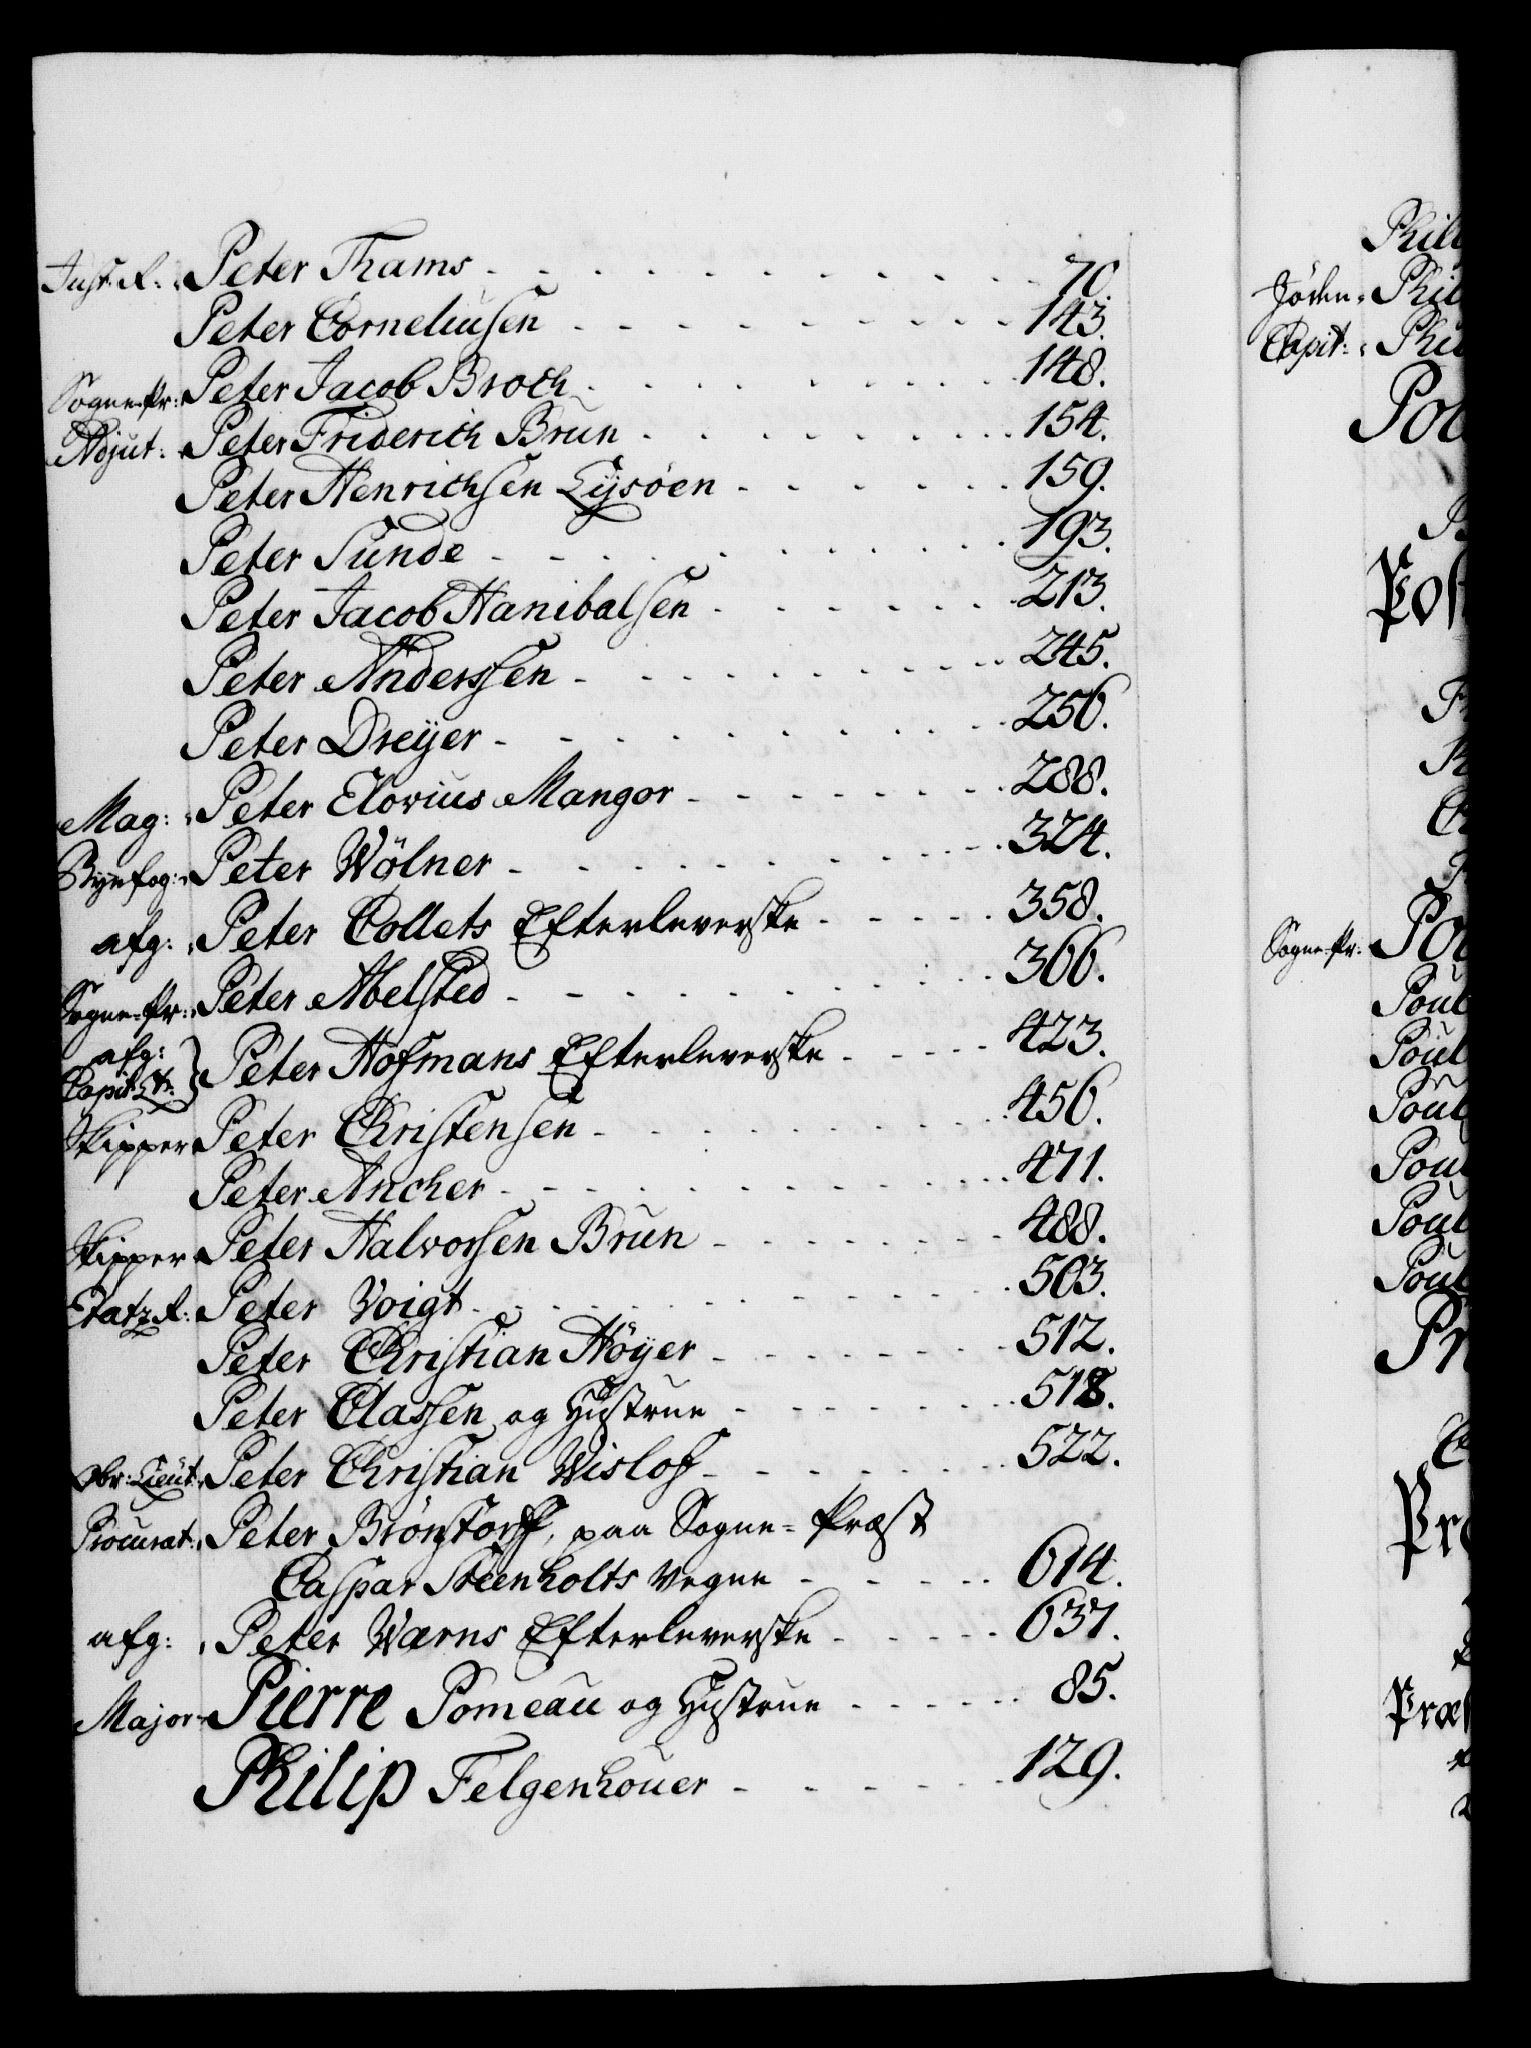 Just: R: Peter Thams - - - 70.
Peter Corneliusen - - - 143.
Sogne-Pr: Peter Jacob Broch - - - 148.
Adjut: Peter Friderich Brun - - - 154.
Peter Henrichsen Lysöen - - - 159.
Peter Sunde - - - 193.
Peter Jacob Hanibalsen - - - 213.
Peter Anderssen - - - 245.
Peter Dreyer - - - 256.
Mag: Peter Elovius Mangor - - - 288.
Byefog: Peter Wölner - - - 324.
afg: Peter Collets Efterleverske - - - 358.
Sogne-Pr: Peter Abelsted - - - 366.
afg: Capit: Lt: } Peter Hofmans Efterleverske - - - 423.
Skipper Peter Christensen - - - 456.
Peter Ancher - - - 471.
Skipper Peter Halvorsen Brun - - - 488.
Etatz R: Peter Voigt - - - 503.
Peter Christian Höyer - - - 512.
Peter Classen og Hustrue - - - 518.
Obr: Lieut: Peter Christian Wislof - - - 522.
Procurat: Peter Brönstorff, paa Sogne-Præst
Caspar Steenholts Vegne - - - 614.
afg: Peter Wærns Efterleverske - - - 637.
Major Pierre Pomeau og Hustrue - - - 85.
Philip Felgenhouer - - - 129.
Phili
Jöden Phil
Capit: Phi
Pos
Sogne-Pr: Pou
Poul
Poul
Poul
Poul
Poul
Poul
Pr
Præs